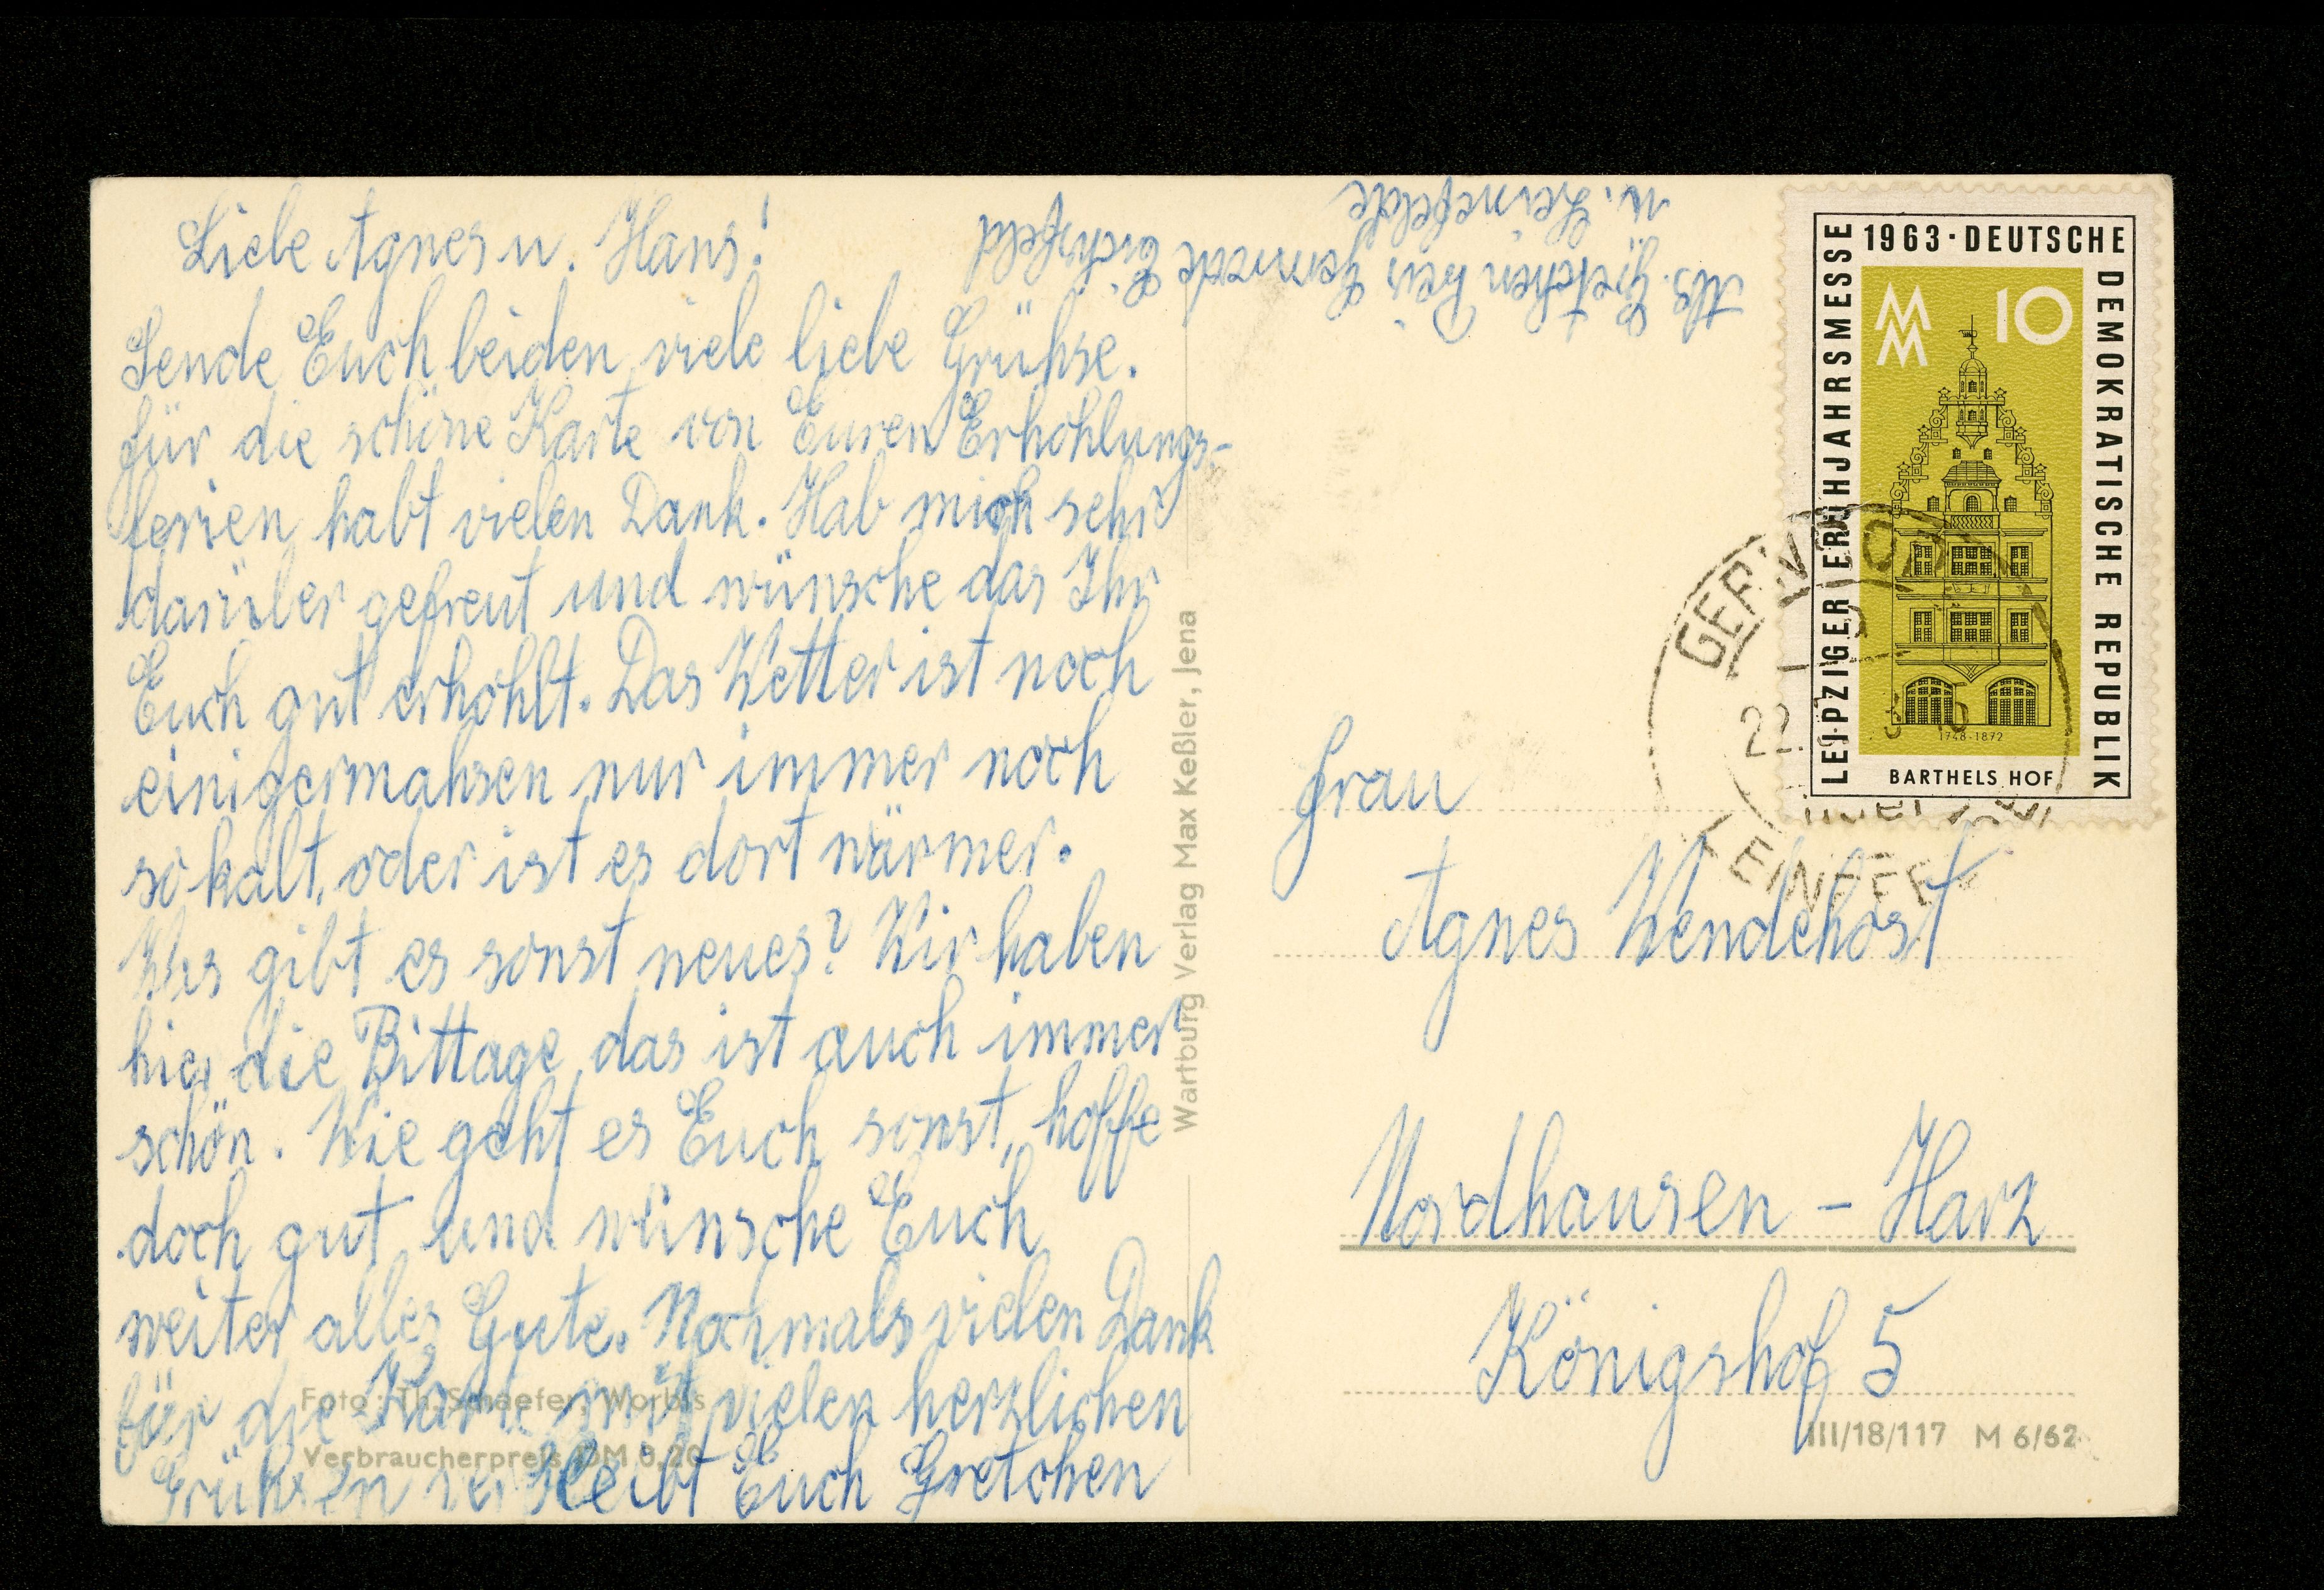 Liebe Agnes u. Hans!
Sende Euch beiden viele liebe Grühse.
für die schöne Karte von Euren Erhohlungs-
ferien habt vielen Dank. Hab mich sehr
darüber gefreut und wünsche das Ihr
Euch gut erhohlt. Das Wetter ist noch
einigermahsen nur immer noch
so kalt, oder ist es dort wärmer.
Was gibt es sonst neues? Wir haben
hier die Bittage das ist auch immer
schön. Wie geht es Euch sonst, hoffe
doch gut und wünsche Euch
weiter alles Gute. Nochmals vielen Dank
für die Karte mit vielen herzlichen
Grühsen verbleibt Euch Gretchen
Foto: Th. Schaefer, Worbis
Verbraucherpreis DM 0,20
Wartburg Verlag Max Keßler, Jena
Abs. Gretchen
Eichsfeld
ü. Leinefelde
LEIPZIGER FRÜHJAHRSMESSE
1963 · DEUTSCHE
DEMOKRATISCHE REPUBLIK
MM
10
1748-1872
BARTHELS HOF
22.
LEINEFE
Frau
Agnes Wendehost
Nordhausen - Harz
Königshof 5
III/18/117 M 6/62